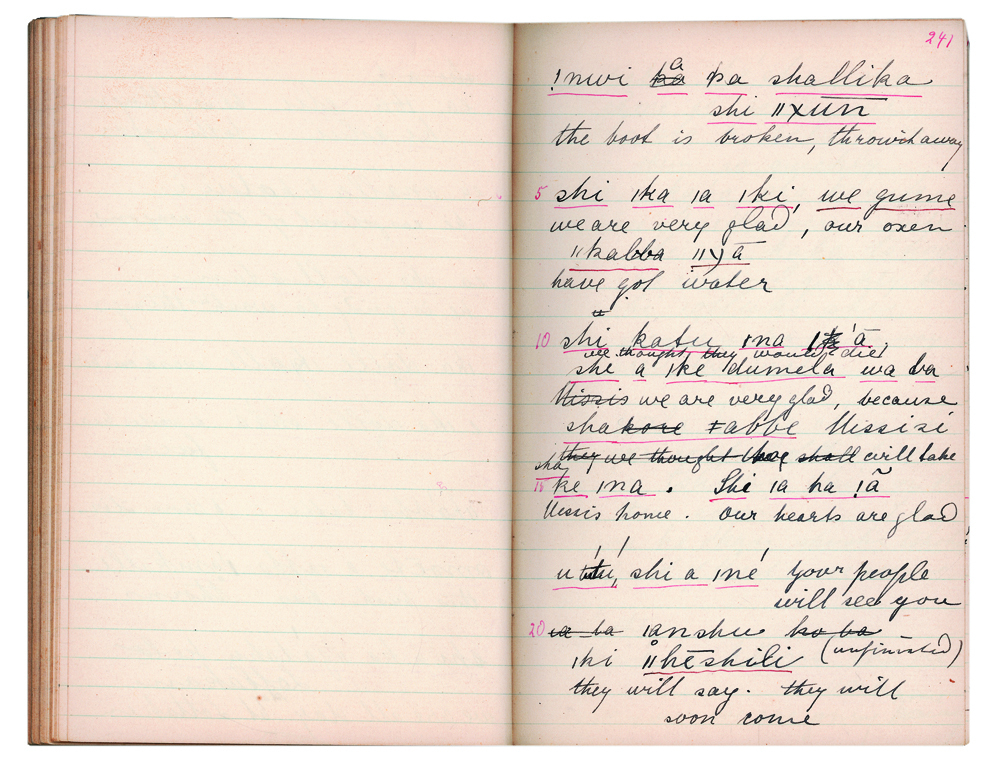 241
ǃnwi k̶a̶ a ka shallika
shi ǁxun
the boot is broken, throw it away
5 shi ǀka ǀa ǀki, we gume
we are very glad, our oxen
ǁkabba ǁɣā
have got water
10 shi katu ǀna ā,
we thought they would die
she a ǀke dumela wa ba
M̶i̶s̶s̶i̶s̶ we are very glad, because
shak̶o̶r̶e̶ ǂabbe Missisi
t̶h̶e̶y̶ w̶e̶ t̶h̶o̶u̶g̶h̶t̶ t̶h̶e̶y̶ s̶h̶a̶l̶l̶ will take
sha
ke ǀna. Shi ǀa ka ǃã
Missis home. Our hearts are glad
u tu, shi a ǀné your people
will see you
20 ǀ̶a̶ b̶a̶ ǀanshu k̶o̶ b̶a̶
ǀki ǁkēshili (unfinished)
they will say. they will
soon come